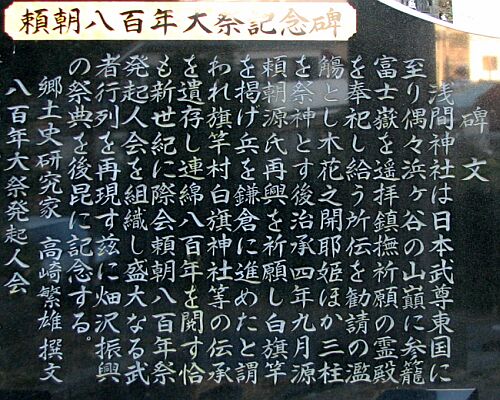 頼朝八百年大祭記念碑
碑文
浅間神社は日本武尊東国に
至り偶々浜ヶ谷の山巓に参籠
富士嶽を遥拝鎮撫祈願の霊殿
を奉祀し給う所伝を勧請の濫
觴とし木花之開耶姫ほか三柱
を祭神とす後治承四年九月源
頼朝源氏再興を祈願し白旗竿
を掲げ兵を鎌倉に進めたと謂
われ旗竿村白旗神社等の伝承
を遺存し連綿八百年を閲す恰
も新世紀に際会頼朝八百年祭
発起人会を組織し盛大なる武
者行列を再現す玆に畑沢振興
の祭典を後昆に記念する。
郷土史研究家 高崎繁雄 撰文
八百年大祭発起人会